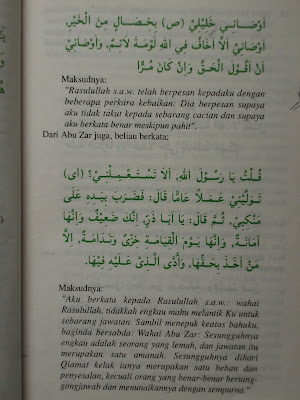 أَوْصَانِي خَلِيْلِيْ (ص) بِخِصَالٍ مِنَ الْخَيْرِ،
أَوْصَانِيْ أَلاَّ أَخَافُ فِي اللهِ لَوْمَةَ لَائِمٍ، وَأَوْصَانِيْ
أَنْ أَقُوْلَ الْحَقَّ وَإِنْ كَانَ مُرًّا
Maksudnya:
"Rasulullah s.a.w. telah berpesan kepadaku dengan
beberapa perkara kebaikan: Dia berpesan supaya
aku tidak takut kepada sebarang cacian dan supaya
aku berkata benar meskipun pahit".
Dari Abu Zar juga, beliau berkata:
قُلْتُ يَا رَسُوْلَ اللهِ، أَلاَ تَسْتَعْمِلُنِيْ؟ (أى)
تَوَلَّيْنِيْ عَمَلاً عَامًّا قَالَ: فَضَرَبَ بِيَدِهِ عَلَى
مَنْكِبَيَّ، ثُمَّ قَالَ: يَا أَبَا ذَرٍّ، إِنَّكَ ضَعِيْفٌ وَإِنَّهَا
أَمَانَةٌ، وَإِنَّهَا يَوْمَ الْقِيَامَةِ خِزْيٌ وَنَدَامَةٌ، إِلاَّ
مَنْ أَخَذَ بِحَقِّهَا، وَأَدَّى الَّذِىْ عَلَيْهِ فِيْهَا.
Maksudnya:
"Aku berkata kepada Rasulullah s.a.w.: wahai
Rasulullah, tidakkah engkau mahu melantik Ku untuk
sebarang jawatan. Sambil menepuk keatas bahuku,
baginda bersabda: Wahai Abu Zar: Sesungguhnya
engkau adalah seorang yang lemah, dan jawatan itu
merupakan satu amanah. Sesungguhnya dihari
Qiamat kelak ianya merupakan satu beban dan
penyesalan, kecuali orang yang benar-benar bertang-
gongjawab dan menunaikannya dengan sempurna."